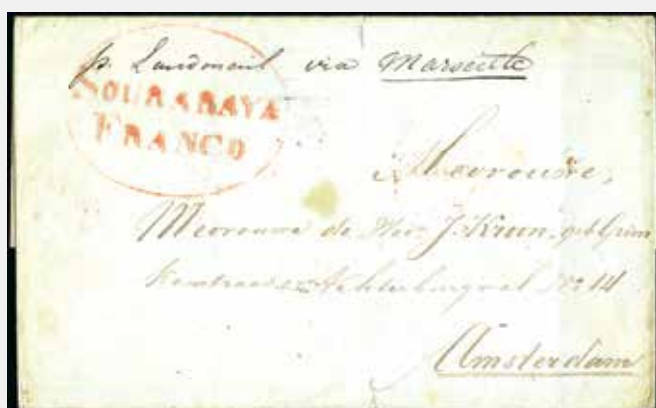 p. Landmail via Marseille
SOURABAYA
FRANCO
Mevrouwe,
Mevrouwe de Wed. J. Kruin, geb.
Achterburgwal No 14
Amsterdam